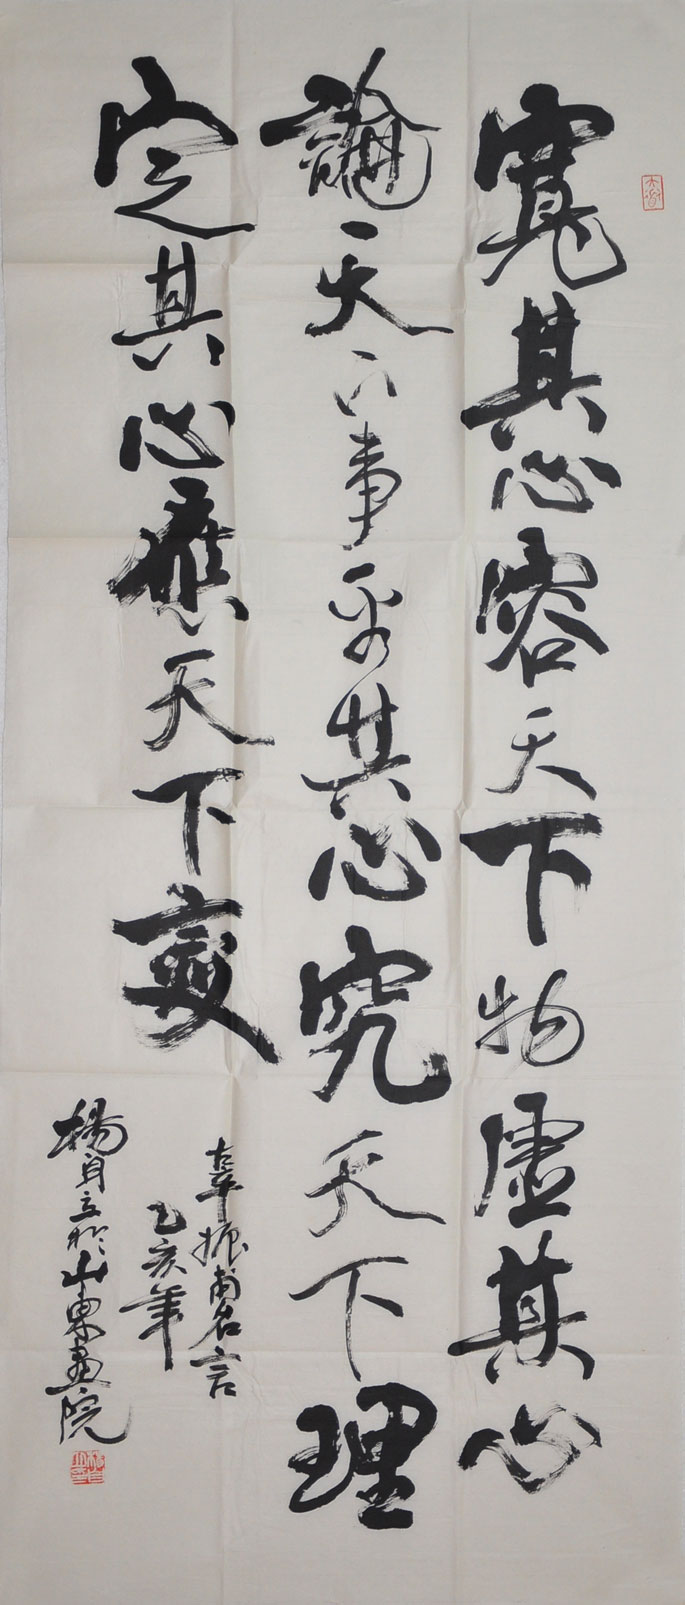 寬其心容天下物虛其心
論天下事平其心究天下理
定其心應天下變
辜振甫名言
乙亥年
楊身立於山東畫院